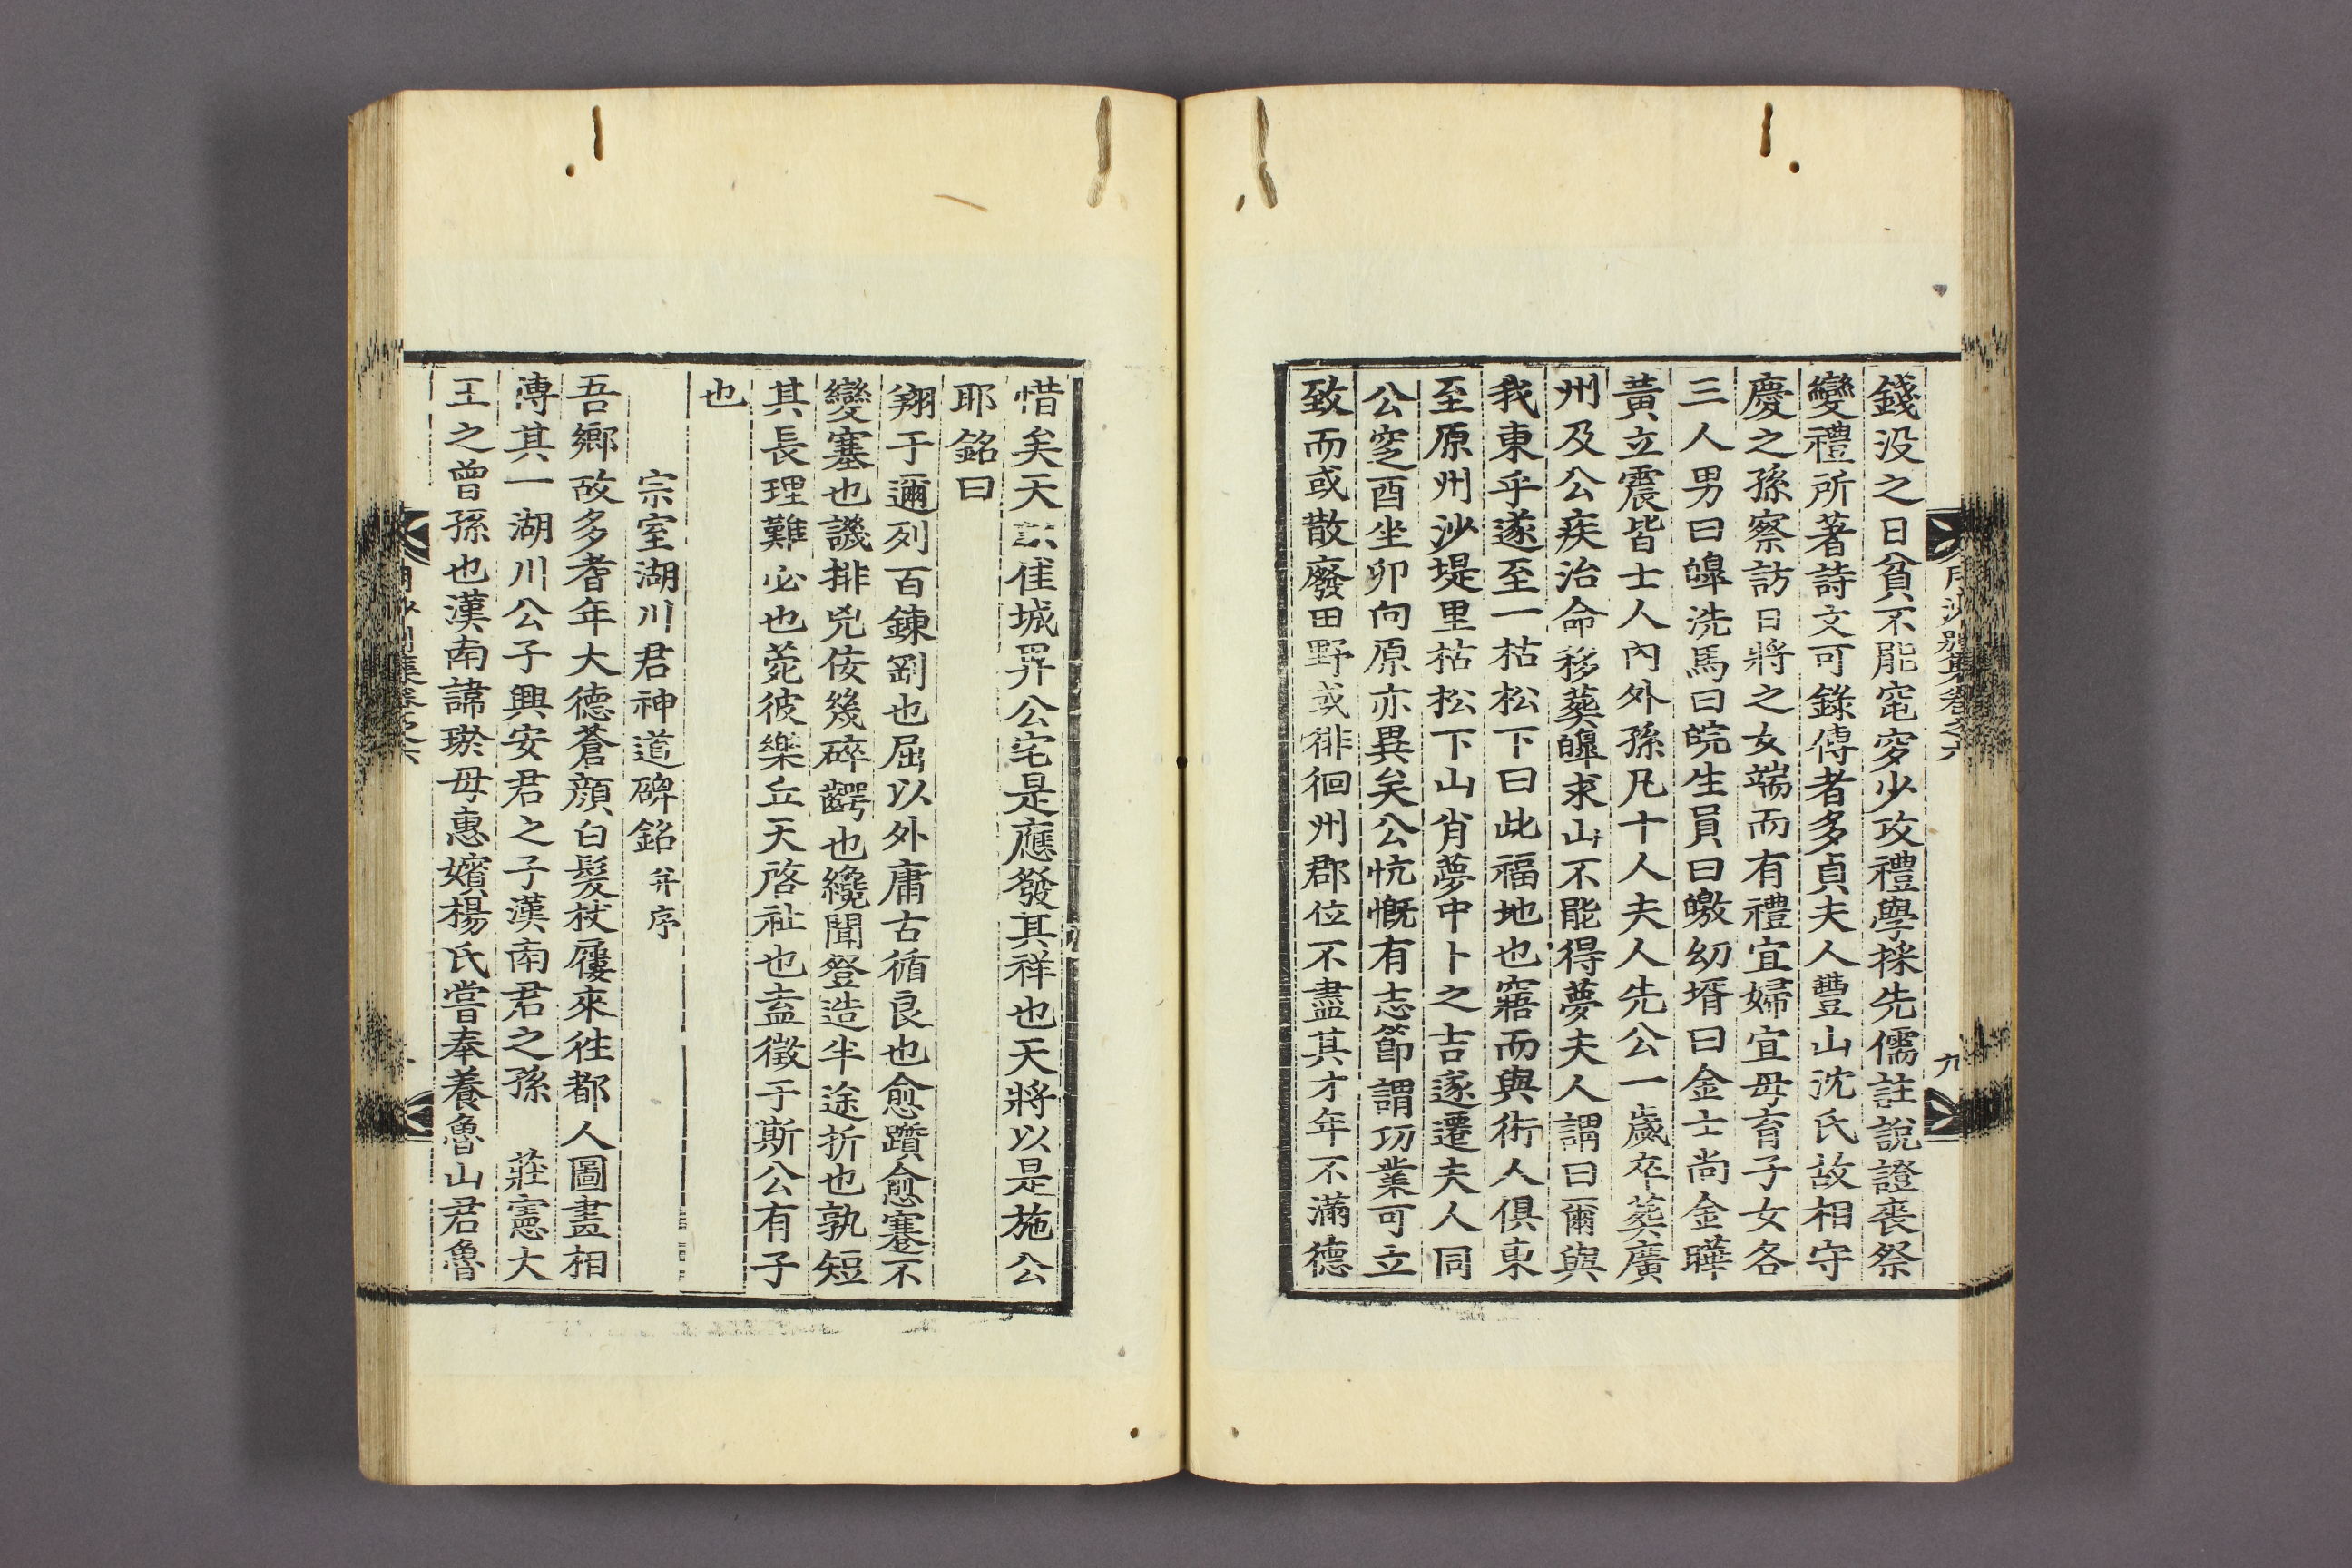 錢沒之日貧不能窀穸少攻禮學採先儒註說證喪祭
變禮所著詩文可錄傳者多貞夫人豐山沈氏故相守
慶之孫察訪日將之女端而有禮宜婦宜母育子女各
三人男曰皥洗馬曰皖生員曰皦幼壻曰金士尚金曄
黃立震皆士人內外孫凡十人夫人先公一歲卒葬廣
州及公疾治命移葬皥求山不能得夢夫人謂曰爾與
我東乎遂至一枯松下曰此福地也寤而與術人俱東
至原州沙堤里枯松下山肖夢中卜之吉遂遷夫人同
公窆酉坐卯向原亦異矣公忼慨有志節謂功業可立
致而或散廢田野或徘徊州郡位不盡其才年不滿德
月沙別集卷之六
九
惜矣天佳城畀公宅是應發其祥也天將以是施公
耶銘曰
翔于邇列百鍊剛也屈以外庸古循良也愈躓愈蹇不
變塞也譏排兇侫幾碎齶也纔聞登造半途折也孰短
其長理難必也菀彼樂丘天啓祉也盍徵于斯公有子
也
宗室湖川君神道碑銘 幷序
吾鄉故多耆年大德蒼顔白髮杖屨來往都人圖畫相
傳其一湖川公子興安君之子漢南君之孫 莊憲大
王之曾孫也漢南諱𤥽母惠嬪楊氏嘗奉養魯山君魯